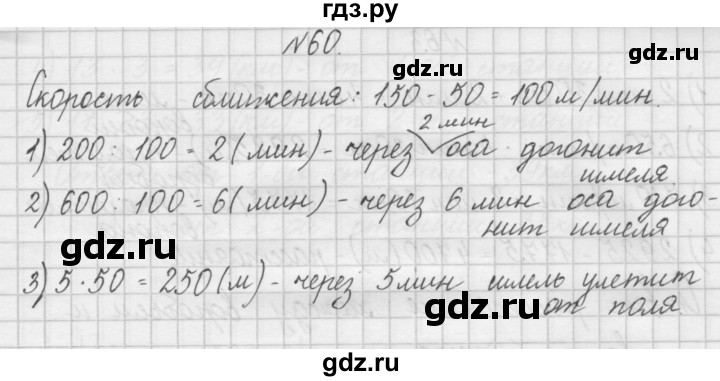 гдз.ру
№60.
Скорость сближения: 150 - 50 = 100 м/мин.
2 мин
1) 200 : 100 = 2 (мин) - через оса догонит
шмеля.
2) 600 : 100 = 6 (мин) - через 6 мин оса дого-
нит шмеля
gdz.ru
3) 5 · 50 = 250 (м) - через 5 мин шмель улетит
от поля
gdz.ru
gdz.ru